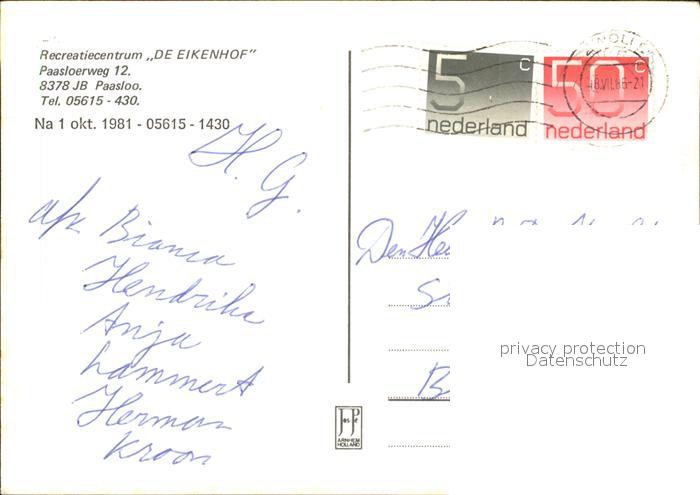 Recreatiecentrum „DE EIKENHOF"
Paasloerweg 12.
8378 JB Paasloo.
Tel. 05615 - 430.
Na 1 okt. 1981 - 05615 - 1430
H. G.
Bianca
Hendrika
Anja
Lammert
Herman
Kroon
5 c
nederland
50 c
nederland
Den
B
privacy protection
Datenschutz
ARNHEM
HOLLAND